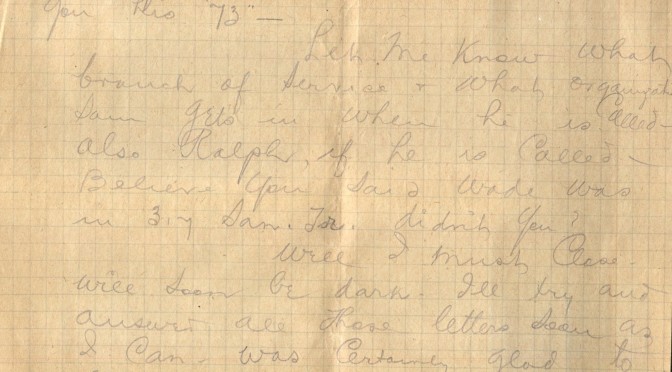 you this "73" —
Let me know what
branch of service & what organizati
Sam gets in when he is called —
also Ralph, if he is called —
Believe you said Wade was
in 317 San. Tr. didn't you?
Well I must close.
will soon be dark. I'll try and
answer all those letters soon as
I can. was certainly glad to